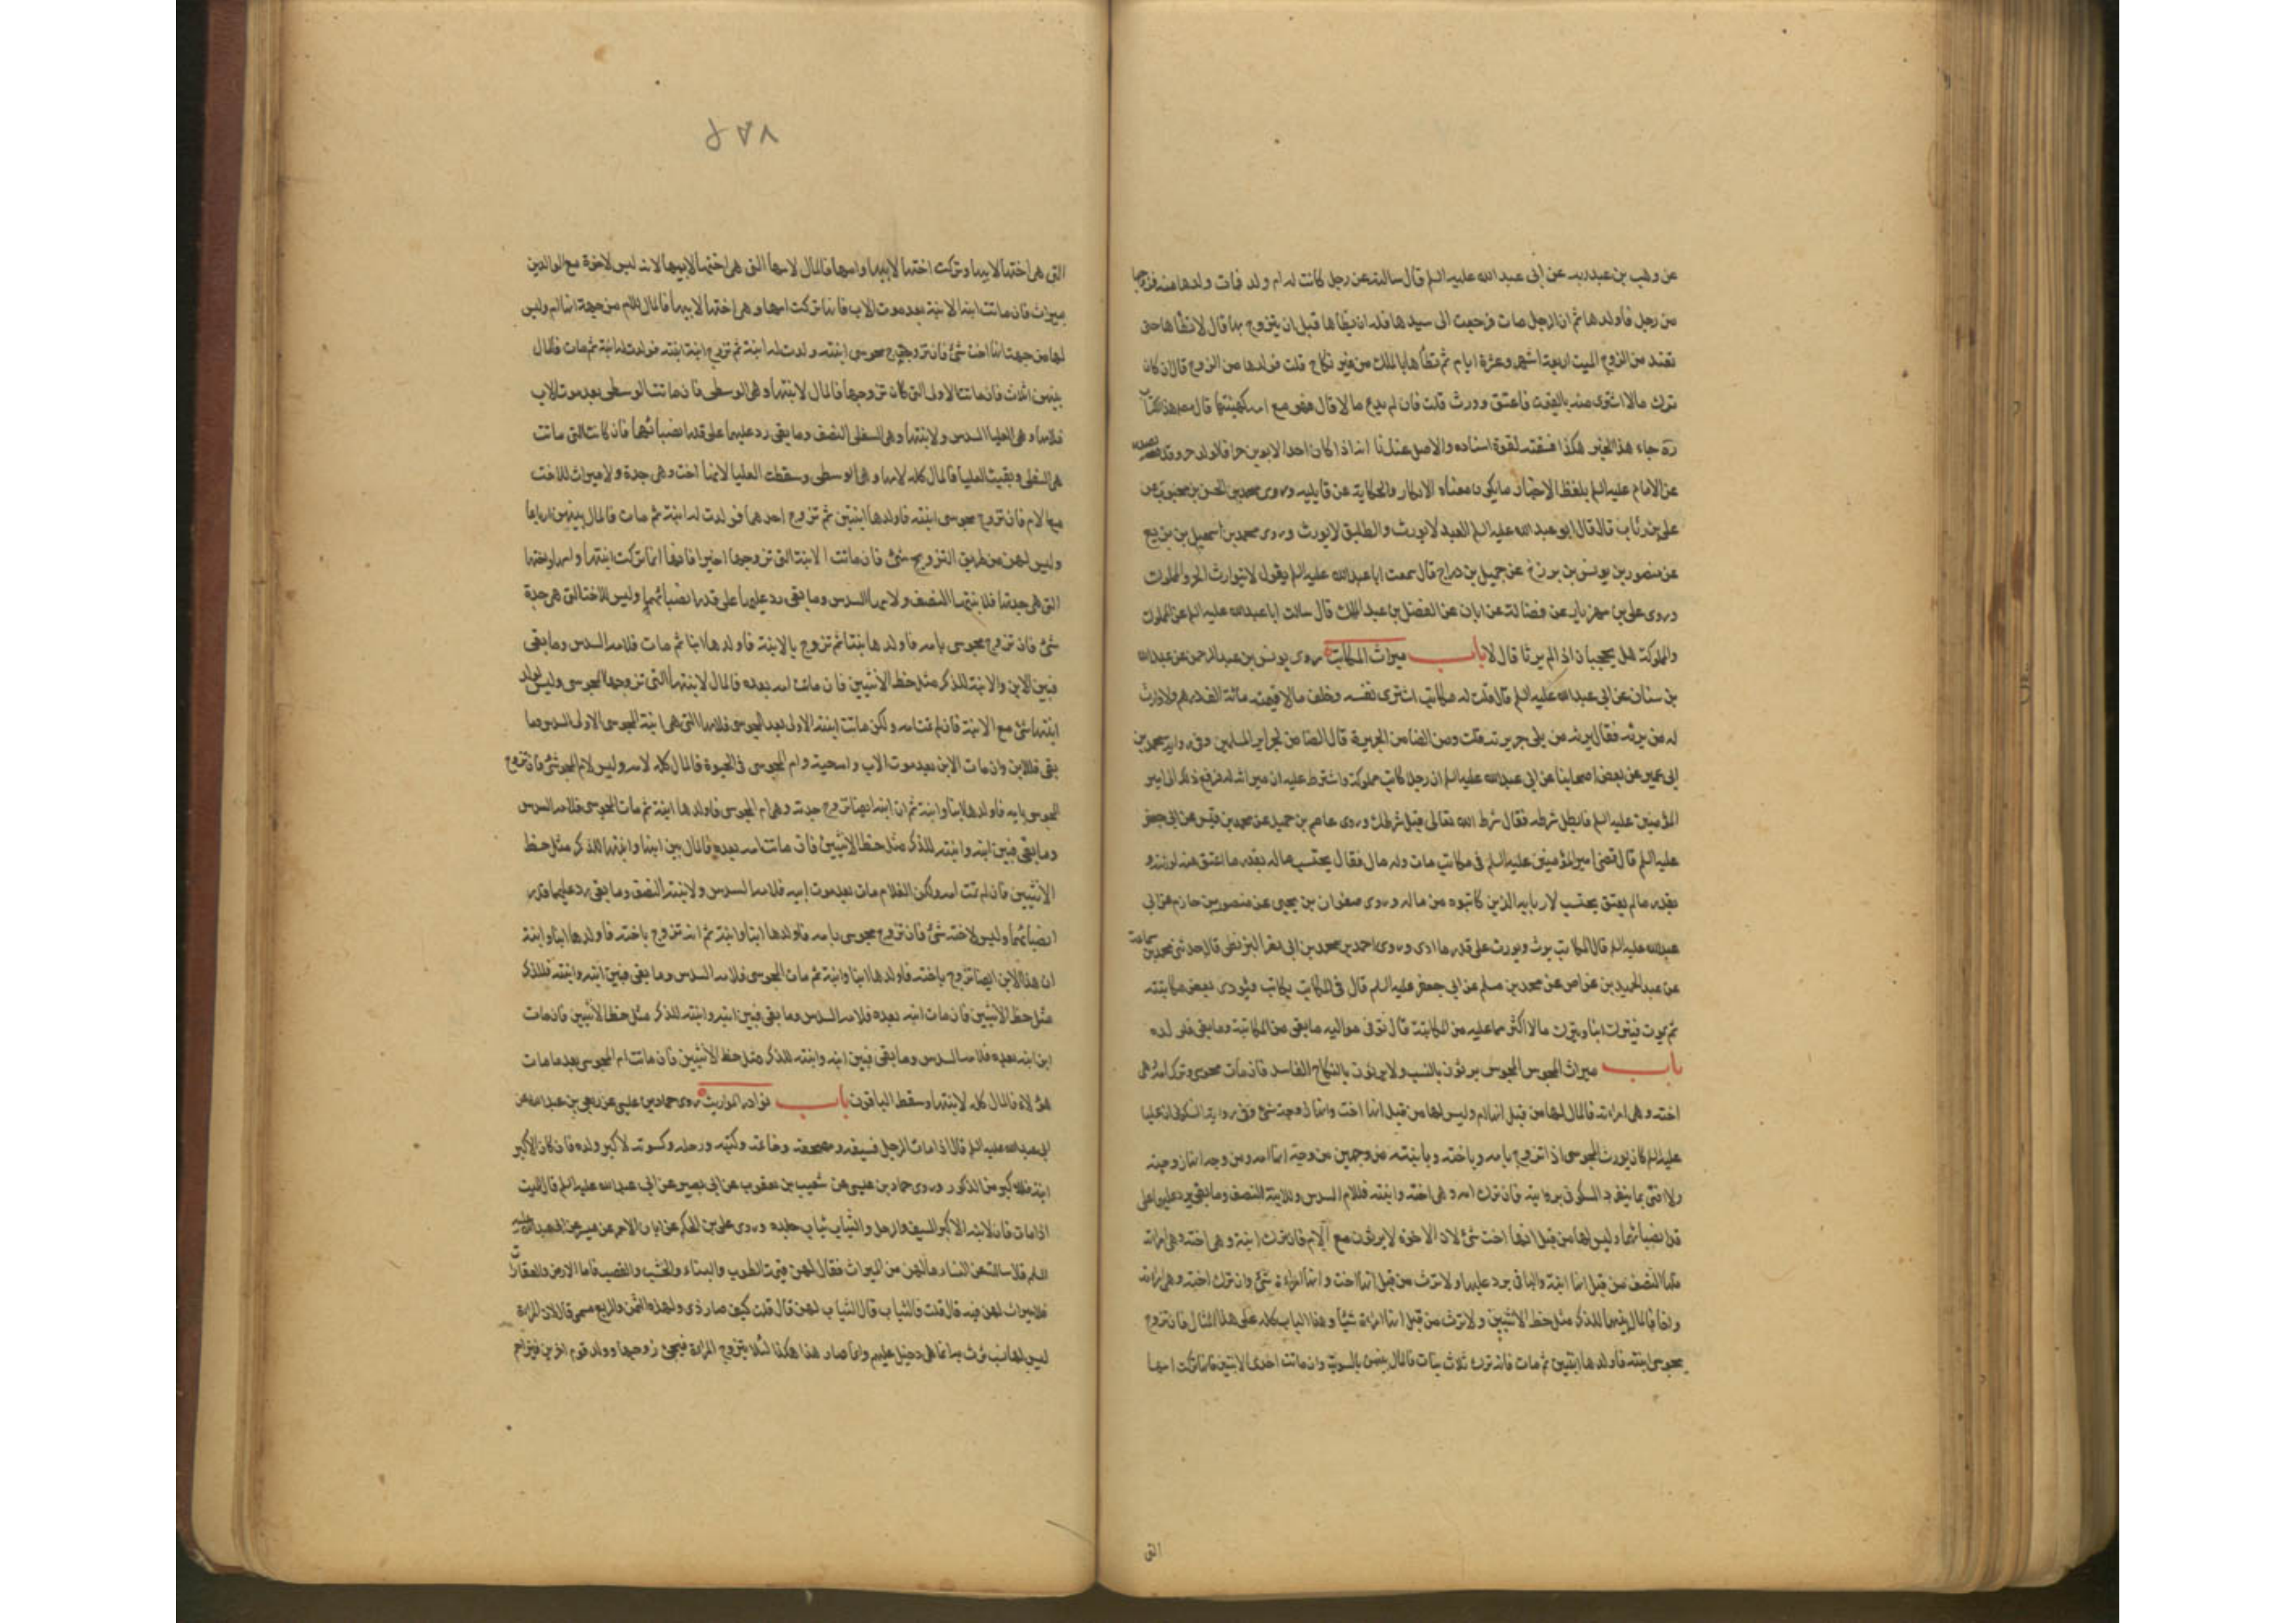 عن وهب بن عبد ربه عن ابى عبد الله عليه السلم قال سالته عن رجل كانت له ام ولد فمات ولدها منه فزوجها
من رجل فأولدها ثم ان الرجل مات فرجعت الى سيدها فله ان يطأها قبل ان يتزوج بها قال لا يطأها حتى
تعتد من الزوج الميت اربعة اشهر وعشرة ايام ثم يطأها بالملك من غير نكاح قلت فولدها من الزوج قال ان كان
ترك مالا اشترى منه بالقيمة فاعتق وورث قلت فان لم يدع مالا قال فهو مع امه كهيئتها قال مصنف هذا الكتاب
ره جاء هذا الخبر هكذا فسقته لقوة اسناده والاصل عندنا انه اذا كان احد الابوين حرا فالولد حر وقد يصدر
عن الامام عليه السلم بلفظ الاخبار ما يكون معناه الانكار والحكاية عن قايليه وروى محمد بن الحسن بن محبوب عن
على بن رئاب قال قال ابو عبد الله عليه السلم العبد لا يورث والطليق لا يورث وروى محمد بن اسمعيل بن بزيع
عن منصور بن يونس بن بزرج عن جميل بن دراج قال سمعت ابا عبد الله عليه السلم يقول لا يتوارث الحر والمملوك
وروى على بن مهزيار عن فضالة عن ابان عن الفضل بن عبد الملك قال سالت ابا عبد الله عليه السلم عن المملوك
والمملوكة هل يحجبان اذا لم يرثا قال لا باب ميراث المكاتب روى يونس بن عبد الرحمن عن عبد الله
بن سنان عن ابى عبد الله عليه السلم قال قلت له مكاتب اشترى نفسه وخلف مالا قيمته مائة الف درهم ولا وارث
له من يرثه فقال يرثه من يلى جريرته قلت ومن الضامن الجريرة قال الضامن لجراير المسلمين وفى رواية محمد بن
ابى عمير عن بعض اصحابنا عن ابى عبد الله عليه السلم ان رجلا كاتب مملوكه واشترط عليه ان ميراثه له فرفع ذلك الى امير
المؤمنين عليه السلم فابطل شرطه فقال شرط الله تعالى قبل شرطك وروى عاصم بن حميد عن محمد بن قيس عن ابى جعفر
عليه السلم قال قضى امير المؤمنين عليه السلم فى مكاتب مات وله مال فقال يحتسب ماله بقدر ما اعتق منه لورثته و
بقدر مالم يعتق يحتسب لاربابه الذين كاتبوه من ماله وروى صفوان بن يحيى عن منصور بن حازم عن ابى
عبد الله عليه السلم قال المكاتب يرث ويورث على قدر ما ادى وروى احمد بن محمد بن ابى نصر البزنطى قال حدثنى محمد بن سماعة
عن عبد الحميد بن عواض عن محمد بن مسلم عن ابى جعفر عليه السلم قال فى المكاتب يكاتب فيؤدى بعض مكاتبته
ثم يموت فيترك ابنا ويترك مالا اكثر مما عليه من المكاتبة قال توفى مواليه ما بقى من المكاتبة وما بقى فلولده
باب ميراث المجوس المجوس يرثون بالنسب ولا يرثون بالنكاح الفاسد فان مات مجوسى وترك امه وهى
اخته وهى امراته فالمال لها من قبل انها ام وليس لها من قبل انها اخت وانها زوجة شئ وفى رواية السكونى ان عليا
عليه السلم كان يورث المجوسى اذا تزوج بامه وباخته وبابنته من وجهين من وجه انها امه ومن وجه انها زوجته
ولا افتى بما ينفرد السكونى بروايته فان ترك امه وهى اخته وابنته فللام السدس وللابنة النصف وما بقى يرد عليهما على
قدر نصيبائهما وليس لها من قبل انها اخت شئ لان الاخوة لا يرثون مع الام فان ترك ابنة وهى اخته وهى امراته
فلها النصف من قبل انها ابنة والباقى يرد عليها ولا ترث من قبل انها اخت وانها امراة شئ وان ترك اخته وهى امراته
واخا فالمال بينهما للذكر مثل حظ الانثيين ولا ترث من قبل انها امراة شيئا وهذا الباب كله على هذا المثال فان تزوج
مجوسى ابنته فاولدها ابنتين ثم مات فانه ترك ثلاث بنات فالمال بينهن بالسوية وان ماتت احدى الابنتين فانها تركت امها
التى
٤٧٨
التى هى اختها لابيها وتركت اختها لابيها وامها فالمال لامها التى هى اختها لابيها لانه ليس للاخوة مع الوالدين
ميراث فان ماتت ابنة الابنة بعد موت الاب فانها تركت امها وهى اختها لابيها فالمال للام من جهة انها ام وليس
لها من جهة انها اخت شئ فان تزوج مجوسى ابنته وولدت له ابنة ثم تزوج ابنة ابنته فولدت له ابنة ثم مات فالمال
بينهن اثلاث فان ماتت الاولى التى كان تزوجها فالمال لابنتها وهى الوسطى فان ماتت الوسطى بعد موت الاب
فلامها وهى العليا السدس ولابنتها وهى السفلى النصف وما بقى رد عليهما على قدر انصبائهما فان كانت التى ماتت
هى السفلى وبقيت العليا فالمال كله لامها وهى الوسطى وسقطت العليا لانها اخت وهى جدة ولا ميراث للاخت
مع الام فان تزوج مجوسى ابنته فاولدها ابنتين ثم تزوج احدهما فولدت له ابنة ثم مات فالمال بينهن ارباعا
وليس لهن من طريق التزويج شئ فان ماتت الابنة التى تزوجها اخيرا فانها انما تركت ابنتها وامها واختها
التى هى جدتها فلابنتها النصف ولامها السدس وما بقى رد عليهما على قدر انصبائهما وليس للاخت التى هى جدة
شئ فان تزوج مجوسى بامه فاولدها بنتا ثم تزوج بالابنة فاولدها ابنا ثم مات فلامه السدس وما بقى
فبين الابن والابنة للذكر مثل حظ الانثيين فان ماتت امه بعده فالمال لابنتها التى تزوجها المجوسى وليس لولد
ابنتها شئ مع الابنة فان لم تمت امه ولكن ماتت ابنته الاولى بعد المجوسى فلامها التى هى ابنة المجوسى الاولى السدس وما
بقى فللابن وان مات الابن بعد موت الاب وامه حية وام المجوسى فى الحيوة فالمال كله لامه وليس لام المجوسى شئ فان تزوج
المجوسى بامه فاولدها ابنا وابنة ثم ان ابنه ايضا تزوج جدته وهى ام المجوسى فاولدها ابنة ثم مات المجوسى فلامه السدس
وما بقى فبين ابنه وابنته للذكر مثل حظ الانثيين فان ماتت امه بعده فالمال بين ابنها وابنتها للذكر مثل حظ
الانثيين فان لم تمت امه ولكن الغلام مات بعد موت ابيه فلامه السدس ولابنته النصف وما بقى رد عليهما قدر
انصبائهما وليس لاخته شئ فان تزوج مجوسى بامه فاولدها ابنا وابنة ثم انه تزوج باخته فاولدها ابنا وابنة
ان هذا الابن ايضا تزوج باخته فاولدها ابنا وابنة ثم مات المجوسى فلامه السدس وما بقى فبين ابنه وابنته فللذكر
مثل حظ الانثيين فان مات ابنه بعده فلامه السدس وما بقى فبين ابنه وابنته للذكر مثل حظ الانثيين فان مات
ابن ابنه بعده فلامه السدس وما بقى فبين ابنه وابنته للذكر مثل حظ الانثيين فان ماتت ام المجوسى بعد ما مات
هؤلاء فالمال كله لابنتها وسقط الباقون باب نوادر المواريث روى حماد بن عيسى عن ربعى بن عبد الله عن
ابى عبد الله عليه السلم قال اذا مات الرجل فسيفه ومصحفه وخاتمه وكتبه ورحله وكسوته لاكبر ولده فان كان الاكبر
ابنة فللاكبر من الذكور وروى حماد بن عيسى عن شعيب بن يعقوب عن ابى بصير عن ابى عبد الله عليه السلم قال الميت
اذا مات فان لابنه الاكبر السيف والرحل والثياب ثياب جلده وروى على بن الحكم عن ابان الاحمر عن ميسر عن ابى عبد الله عليه
السلم قال سالته عن النساء ما لهن من الميراث فقال لهن قيمة الطوب والبناء والخشب والقصب فاما الارض والعقارات
فلا ميراث لهن فيه قال قلت فالثياب قال الثياب لهن قال قلت كيف صار ذى ولهذه الثمن والربع مسمى قال لان المراة
ليس لها نسب ترث به انما هى دخيل عليهم وانما صار هذا هكذا لئلا يتزوج المراة فيجئ زوجها وولد قوم اخرين فيزاحم